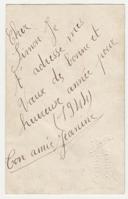 Cher
Simon Je
t'adresse mes
vœux de bonne et
heureuse année pour
(1944)
Ton amie Jeanine